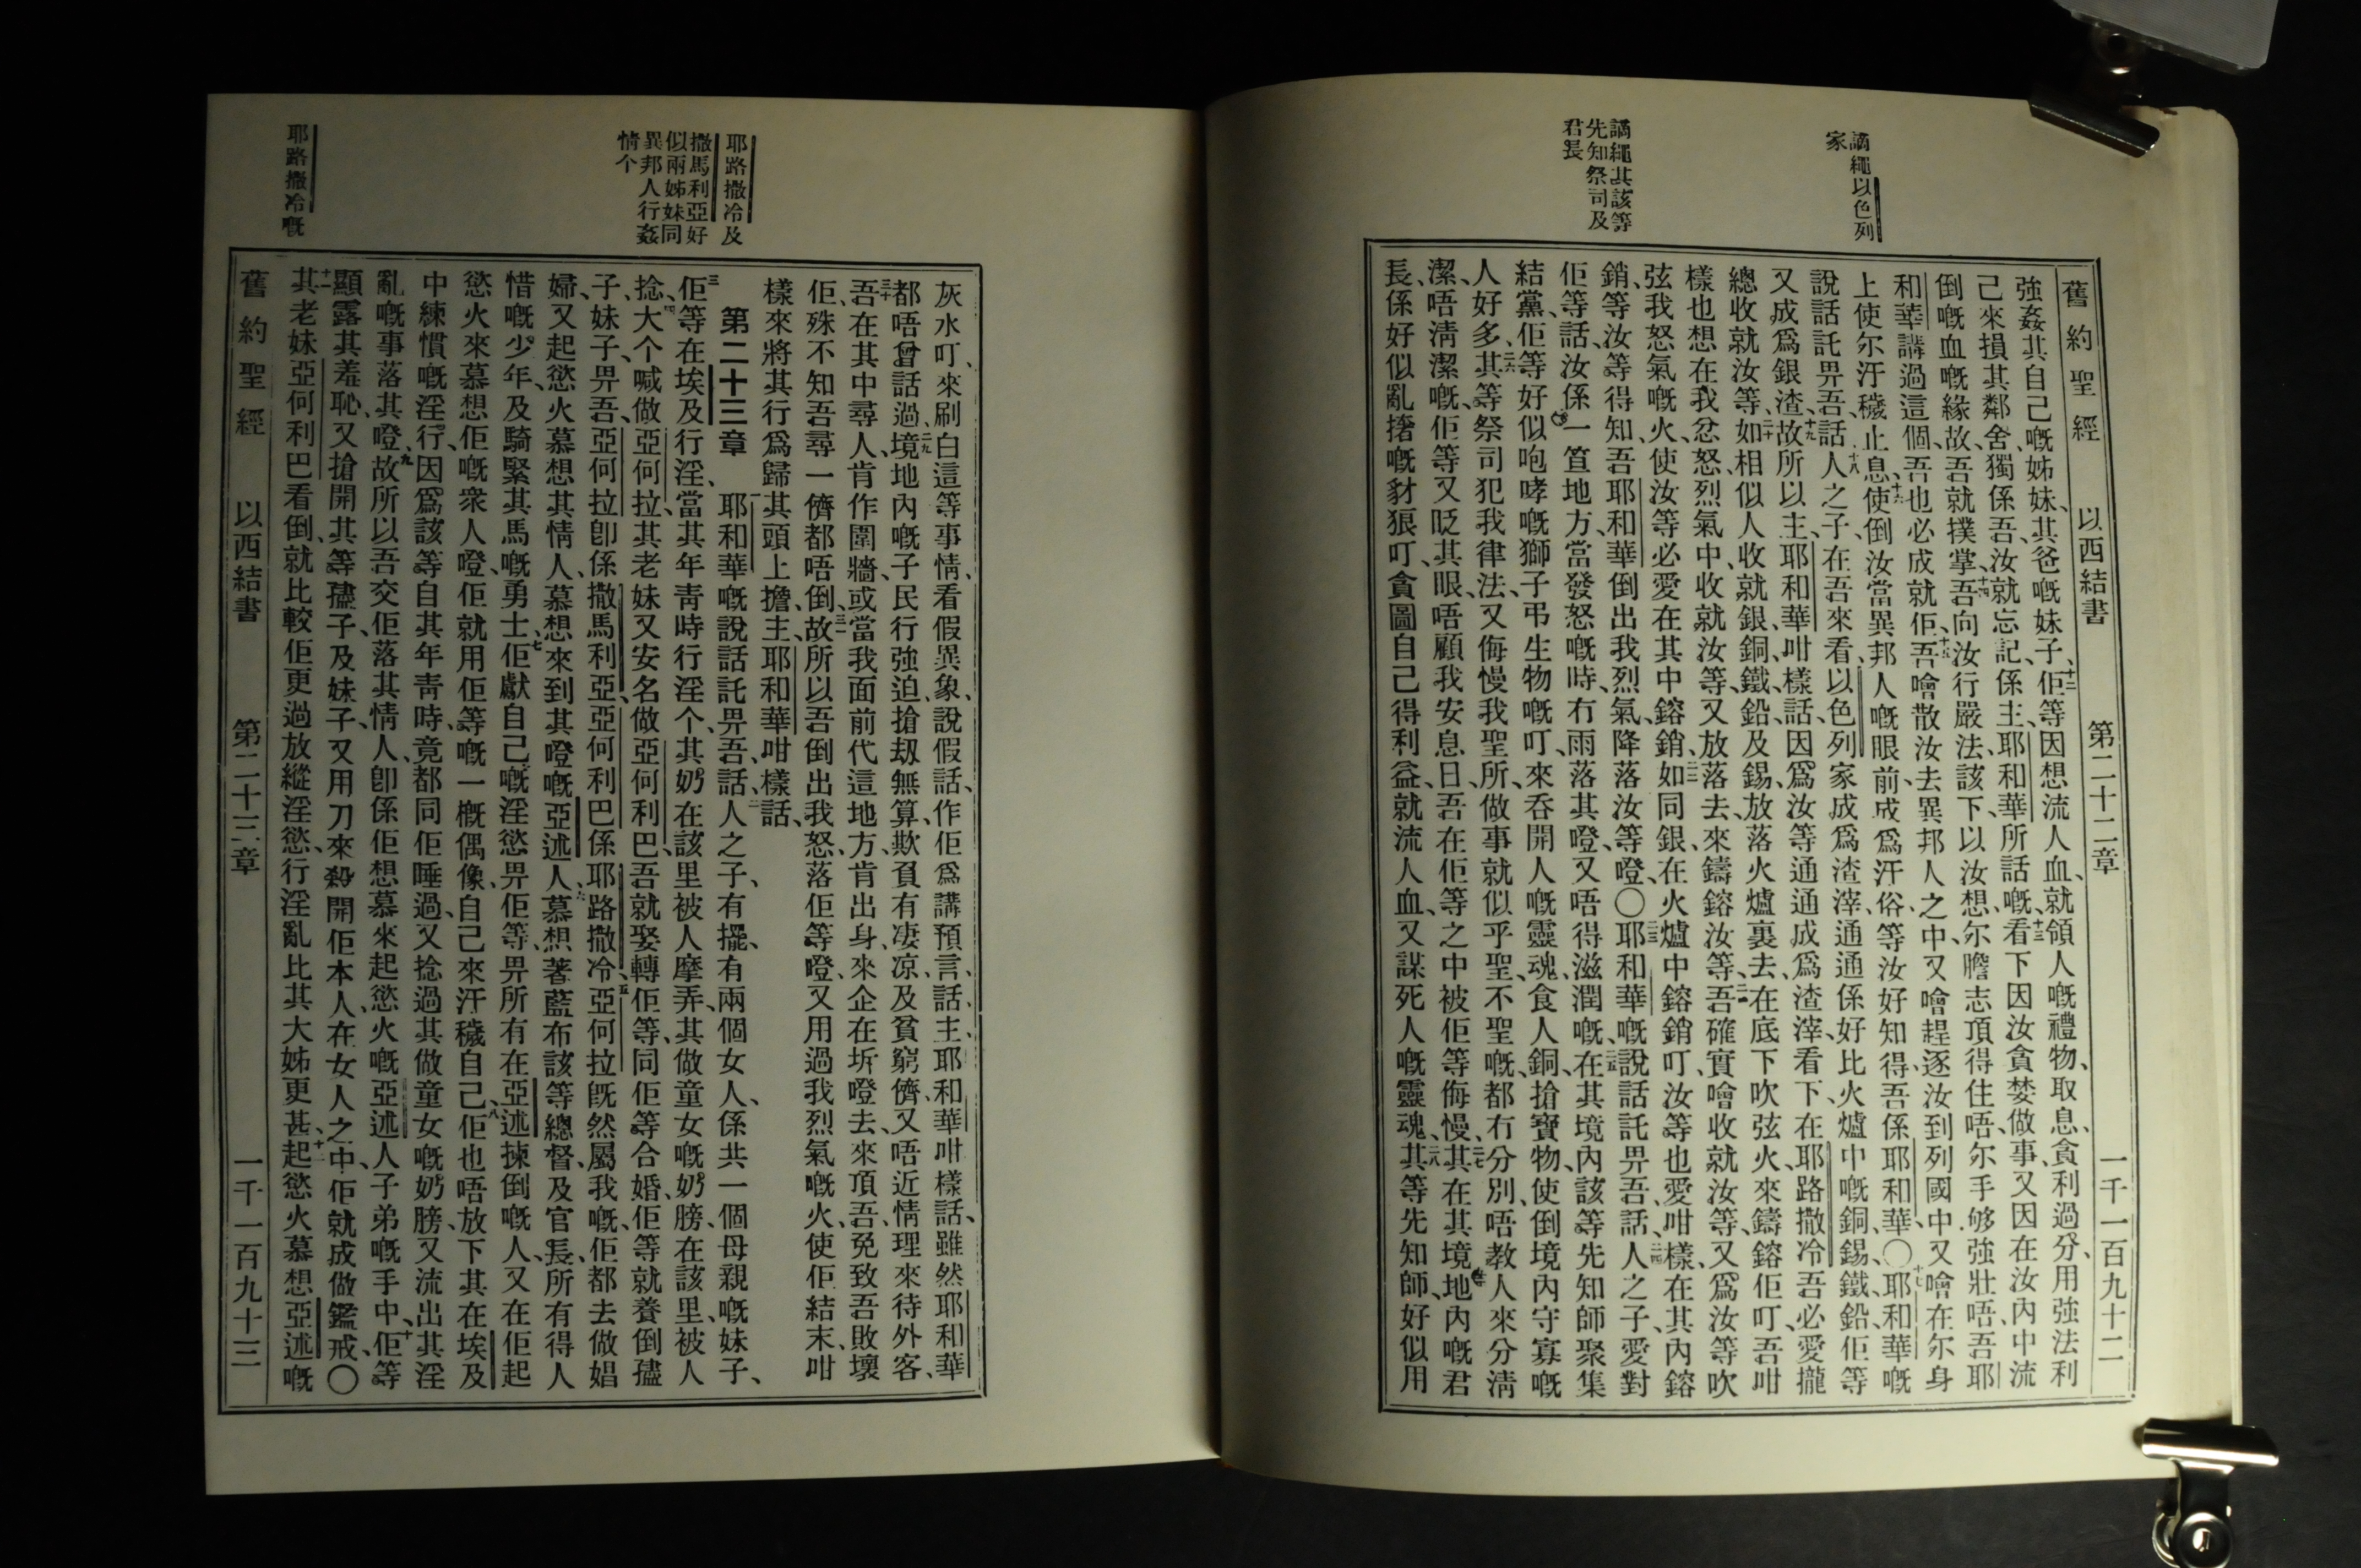 謫繩以色列
家
謫繩其該等
先知祭司及
君長
舊約聖經 以西結書 第二十二章 一千一百九十二
強姦其自己嘅姊妹、其爸嘅妹子、十二佢等因想流人血、就領人嘅禮物、取息、貪利過分、用強法利
己來損其鄰舍、獨係吾、汝就忘記、係主、耶和華所話嘅、十三看下因汝貪婪做事、又因在汝內中流
倒嘅血嘅緣故、吾就撲掌、十四吾向汝行嚴法、該下以汝想、尔膽志頂得住唔、尔手够強壯唔、吾耶
和華講過這個、吾也必成就佢、十五吾噲散汝去異邦人之中、又噲趕逐汝到列國中、又噲在尔身
上使尔汙穢止息、十六使倒汝當異邦人嘅眼前、成爲汙俗、等汝好知得、吾係耶和華、〇十七耶和華嘅
說話託畀吾、話、十八人之子、在吾來看、以色列家成爲渣滓、通通係好比火爐中嘅銅錫鐵鉛、佢等
又成爲銀渣、十九故所以主、耶和華咁樣話、因爲汝等通通成爲渣滓、看下、在耶路撒冷吾必愛攏
總收就汝等、二十如相似人收就銀、銅、鐵、鉛、及錫、放落火爐裏去、在底下吹弦火、來鑄鎔佢叮、吾咁
樣也想在我忿怒、烈氣中、收就汝等、又放落去、來鑄鎔汝等、二一吾確實噲收就汝等、又爲汝等吹
弦我怒氣嘅火、使汝等必愛在其中鎔銷、二二如同銀在火爐中鎔銷叮、汝等也愛咁樣、在其內鎔
銷、等汝等得知、吾耶和華倒出我烈氣、降落汝等噔、〇二三耶和華嘅說話託畀吾、話、二四人之子、愛對
佢等話、汝係一笪地方、當發怒嘅時、冇雨落其噔、又唔得滋潤嘅、二五在其境內、該等先知師聚集
結黨、佢等好似咆哮嘅獅子弔生物嘅叮、來吞開人嘅靈魂、食人銅、搶寶物、使倒境內守寡嘅
人好多、二六其等祭司犯我律法、又侮慢我聖所、做事就似乎聖、不聖嘅、都冇分別、唔教人來分淸
潔、唔淸潔嘅、佢等又眨其眼、唔顧我安息日、吾在佢等之中被佢等侮慢、二七其在其境地內嘅君
長、係好似亂撦嘅豺狼叮、貪圖自己得利益、就流人血、又謀死人嘅靈魂、二八其等先知師、好似用
耶路撒冷及
撒馬利亞好
似兩姊妹同
異邦人行姦
情个
耶路撒冷嘅
灰水叮、來刷白這等事情、看假異象、說假話、作佢爲講預言、話、主、耶和華咁樣話、雖然耶和華
都唔曾話過、二九境地內嘅子民行強迫搶刼無算、欺負有凄凉、及貧窮儕、又唔近情理來待外客、
三十吾在其中尋人肯作圍牆、或當我面前代這地方、肯出身、來企在坼噔去、來頂吾、免致吾敗壞
佢、殊不知吾尋一儕都唔倒、三一故所以吾倒出我怒、落佢等噔、又用過我烈氣嘅火、使佢結末、咁
樣來將其行爲歸其頭上擔、主、耶和華咁樣話、
第二十三章 耶和華嘅說話託畀吾、話、二人之子、有擺、有兩個女人、係共一個母親嘅妹子、
三佢等在埃及行淫、當其年靑時行淫个、其奶在該里被人摩弄、其做童女嘅奶膀、在該里、被人
捻、四大个喊做亞何拉、其老妹又安名做亞何利巴、吾就娶轉佢等、同佢等合婚、佢等就養倒孻
子、妹子、畀吾、亞何拉卽係撒馬利亞、亞何利巴係耶路撒冷、五亞何拉旣然屬我嘅、佢都去做娼
婦、又起慾火慕想其情人、慕想來到其噔嘅亞述人、六慕想著藍布該等總督、及官長、所有得人
惜嘅少年、及騎緊其馬嘅勇士、七佢獻自己嘅淫慾畀佢等、畀所有在亞述揀倒嘅人、又在佢起
慾火來慕想佢嘅衆人噔、佢就用佢等嘅一槪偶像、自己來汙穢自己、八佢也唔放下其在埃及
中練慣嘅淫行、因爲該等自其年靑時、竟都同佢睡過、又捻過其做童女嘅奶膀、又流出其淫
亂嘅事落其噔、九故所以吾交佢落其情人、卽係佢想慕來起慾火嘅亞述人子弟嘅手中、十佢等
顯露其羞恥、又搶開其等孻子、及妹子、又用刀來殺開佢本人、在女人之中、佢就成做鑑戒、〇
十一其老妹亞何利巴看倒、就比較佢更過放縱淫慾、行淫亂比其大姊更甚、十二起慾火慕想亞述嘅
舊約聖經 以西結書 第二十三章 一千一百九十三